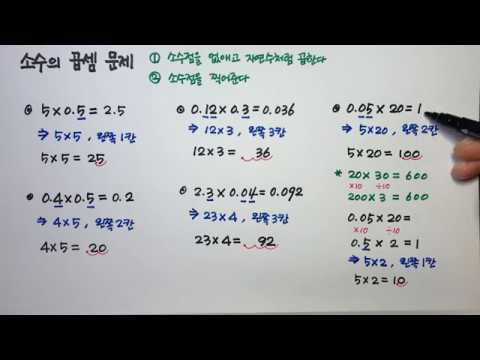 소수의 곱셈 문제
① 소수점을 없애고 자연수처럼 곱한다
② 소수점을 찍어준다
5×0.5=2.5
⇒ 5×5, 왼쪽 1칸
5×5= 25
0.4×0.5=0.2
⇒ 4×5, 왼쪽 2칸
4×5= 20
0.12×0.3=0.036
⇒ 12×3, 왼쪽 3칸
12×3= 36
2.3×0.04=0.092
⇒ 23×4, 왼쪽 3칸
23×4= 92
0.05×20=1
⇒ 5×20, 왼쪽 2칸
5×20=100
* 20×30=600
×10 ÷10
200×3=600
0.05×20=
×10 ÷10
0.5×2=1
⇒ 5×2, 왼쪽 1칸
5×2=10